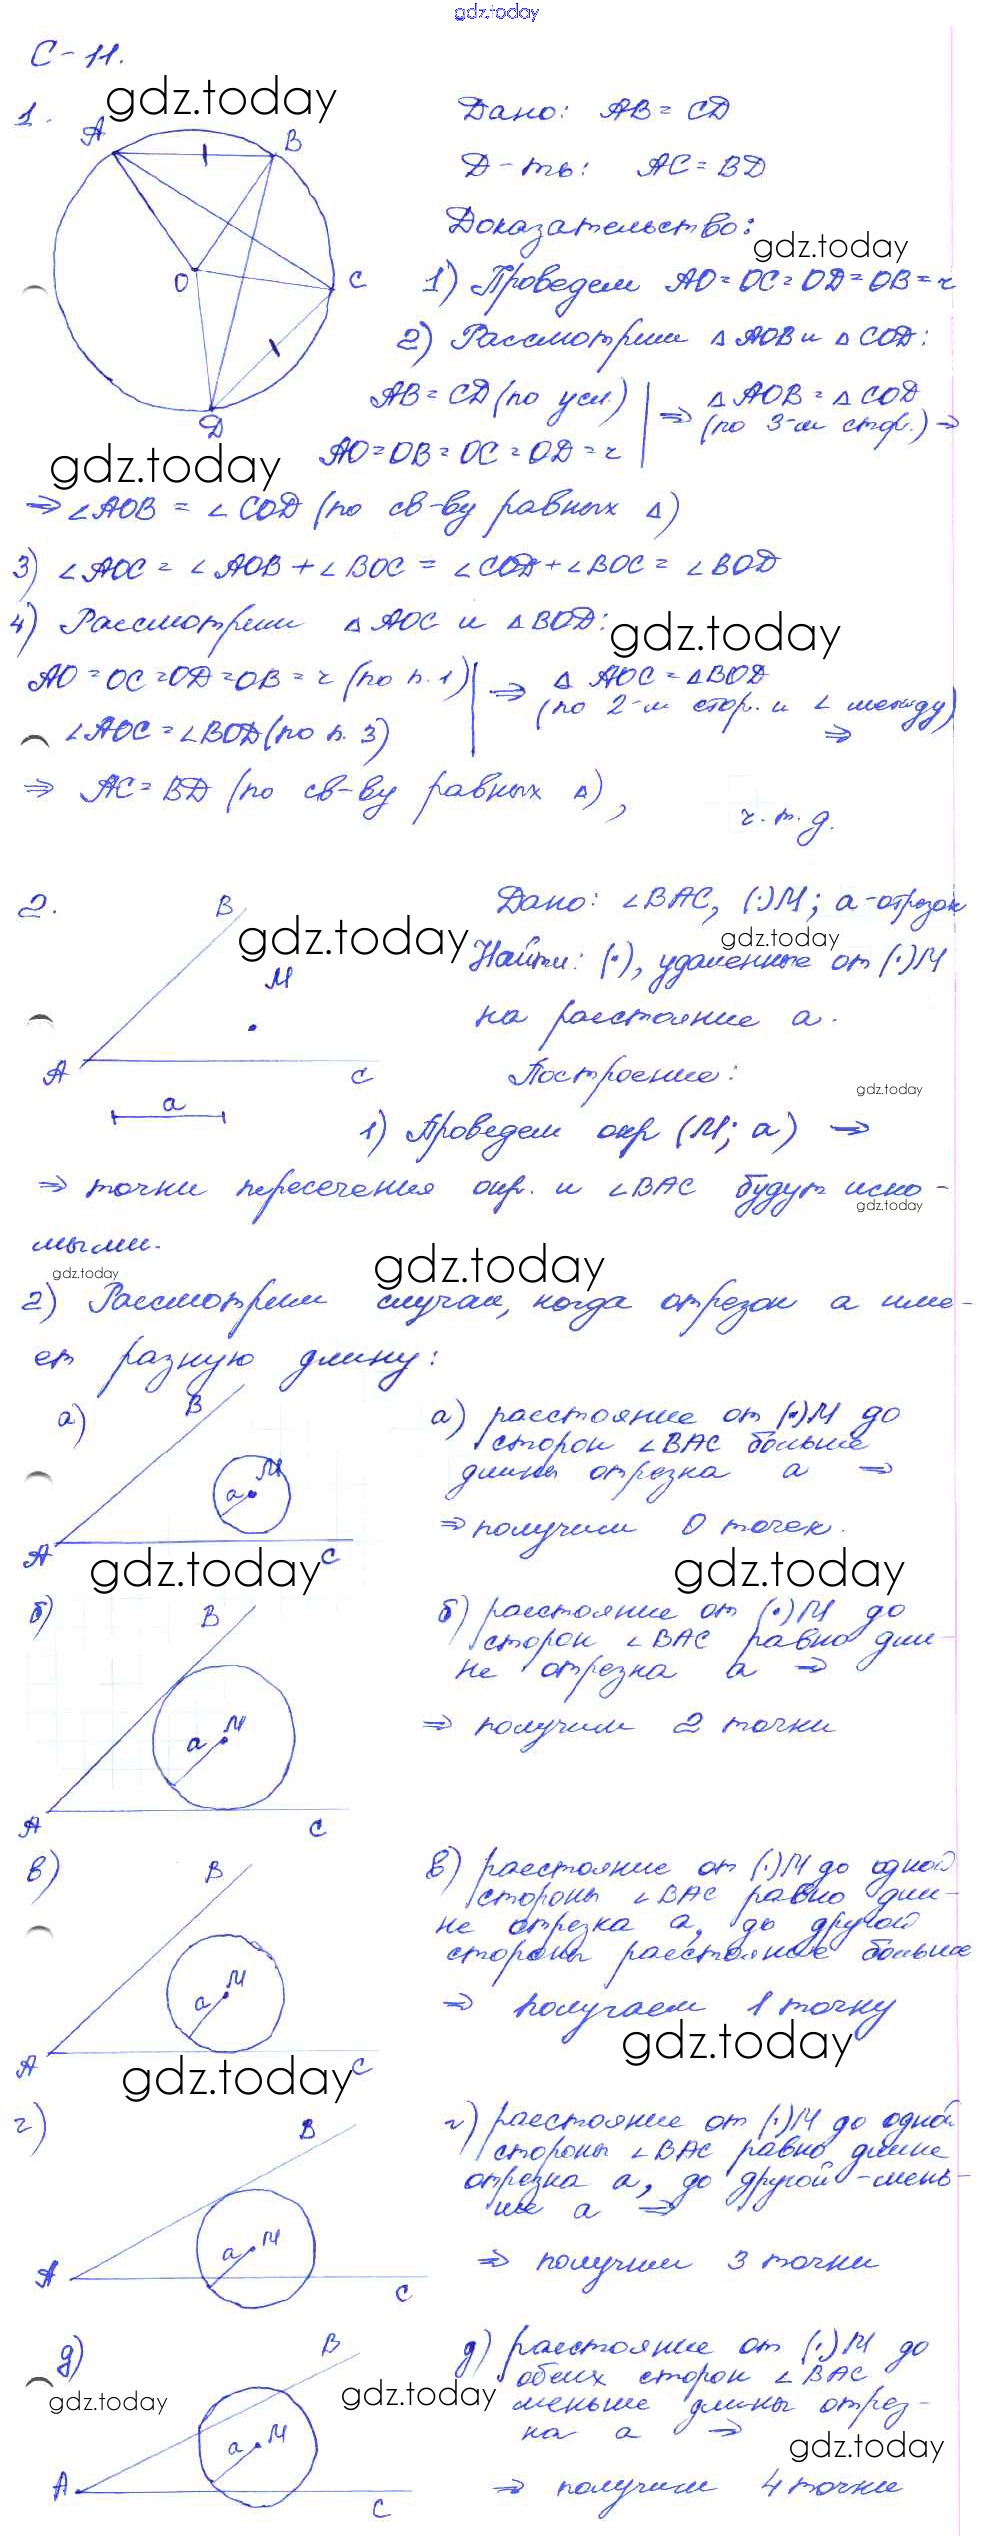 gdz.today
С-11.
gdz.today
1.
A B C D O
Дано: AB = CD
Д-ть: AC = BD
Доказательство:
gdz.today
1) Проведем AO = OC = OD = OB = r
2) Рассмотрим △AOB и △COD:
AB = CD (по усл.) ⇒ △AOB = △COD
(по 3-м стор.) ⇒
AO = OB = OC = OD = r
gdz.today
⇒ ∠AOB = ∠COD (по св-ву равных △)
3) ∠AOC = ∠AOB + ∠BOC = ∠COD + ∠BOC = ∠BOD
4) Рассмотрим △AOC и △BOD:
gdz.today
AO = OC = OD = OB = r (по п. 1) ⇒ △AOC = △BOD
(по 2-м стор. и ∠ между)
∠AOC = ∠BOD (по п. 3) ⇒
⇒ AC = BD (по св-ву равных △),
ч.т.д.
2.
B M A C a
gdz.today
Дано: ∠BAC, (·)M; a-отрезок
gdz.today
Найти: (·), удаленные от (·)M
на расстояние a.
Построение:
gdz.today
1) Проведем окр (M; a) ⇒
⇒ точки пересечения окр. и ∠BAC будут иско-
gdz.today
мыми.
gdz.today
gdz.today
2) Рассмотрим случаи, когда отрезок a име-
ет разную длину:
а)
B M a A C
а) расстояние от (·)M до
сторон ∠BAC больше
длины отрезка a ⇒
⇒ получим 0 точек.
gdz.today
gdz.today
б)
B M a A C
б) расстояние от (·)M до
сторон ∠BAC равно дли-
не отрезка a ⇒
⇒ получим 2 точки
в)
B M a A C
в) расстояние от (·)M до одной
стороны ∠BAC равно дли-
не отрезка a, до другой
стороны расстояние больше
⇒ получаем 1 точку
gdz.today
gdz.today
г)
B M a A C
г) расстояние от (·)M до одной
стороны ∠BAC равно длине
отрезка a, до другой - мень-
ше a ⇒
⇒ получим 3 точки
д)
B M a A C
д) расстояние от (·)M до
обеих сторон ∠BAC
gdz.today
gdz.today
меньше длины отрез-
ка a ⇒
gdz.today
⇒ получим 4 точки